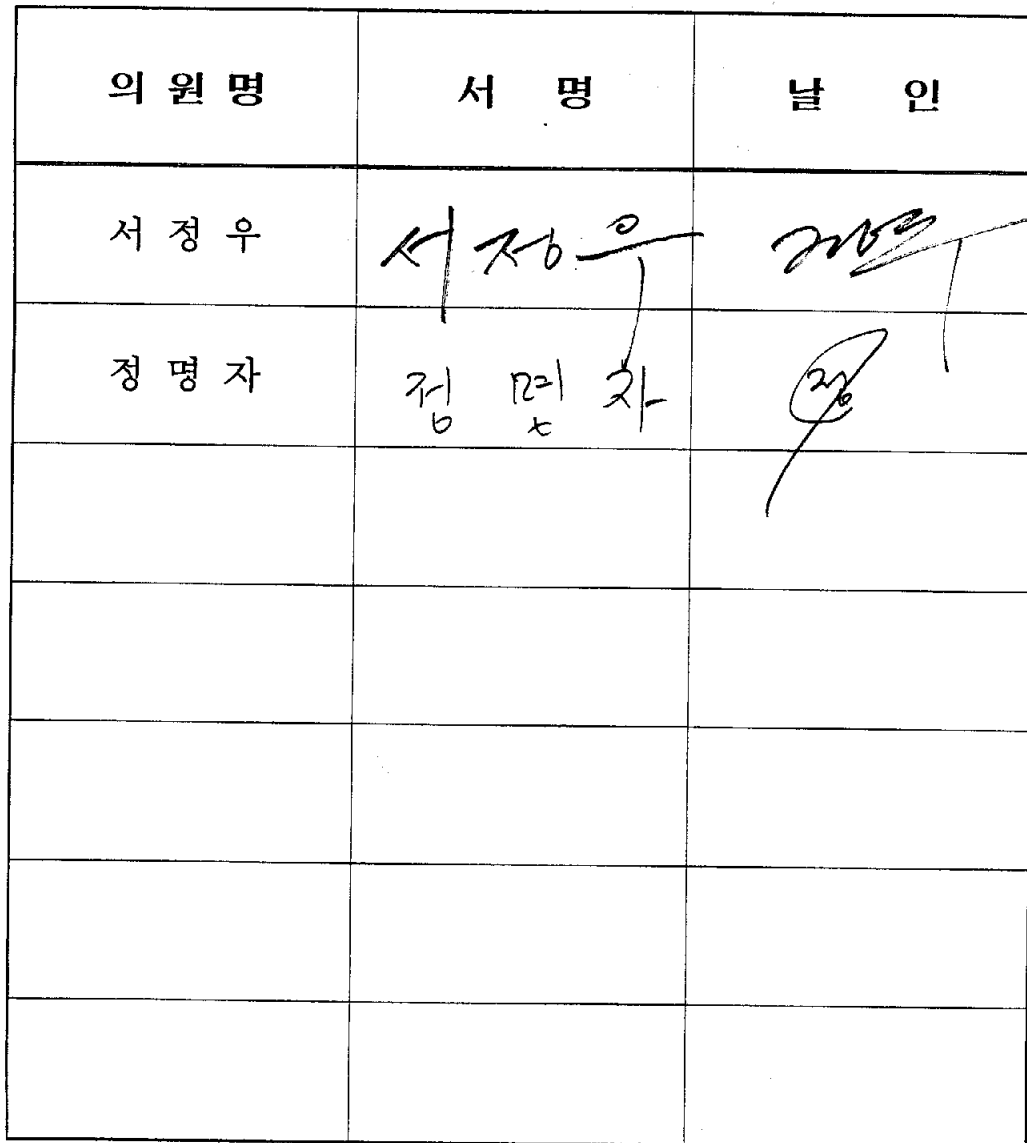 의원명 서 명 날 인
서정우 서정우 정우
정명자 정명자 정